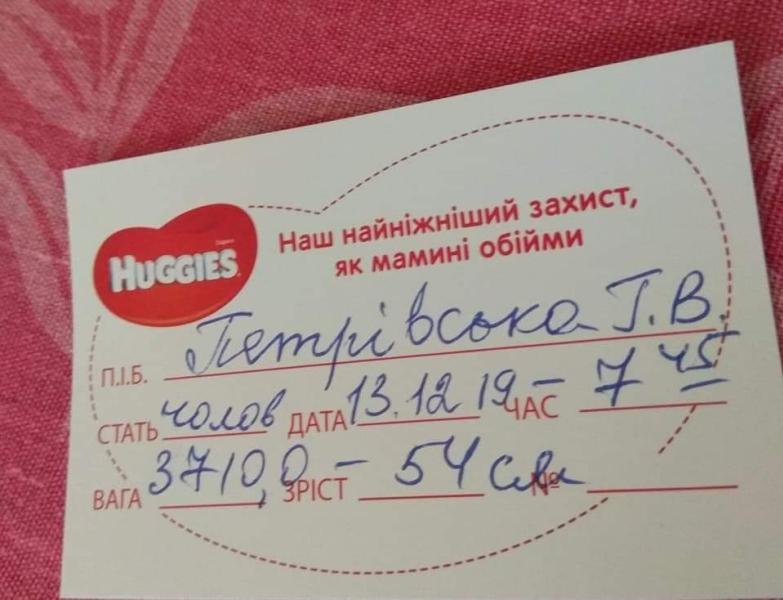 HUGGIES
Наш найніжніший захист,
як мамині обійми
П.І.Б. Петрівська Г.В.
СТАТЬ чолов ДАТА 13.12.19 – ЧАС 7 45
ВАГА 3710,0 – ЗРІСТ 54 см №